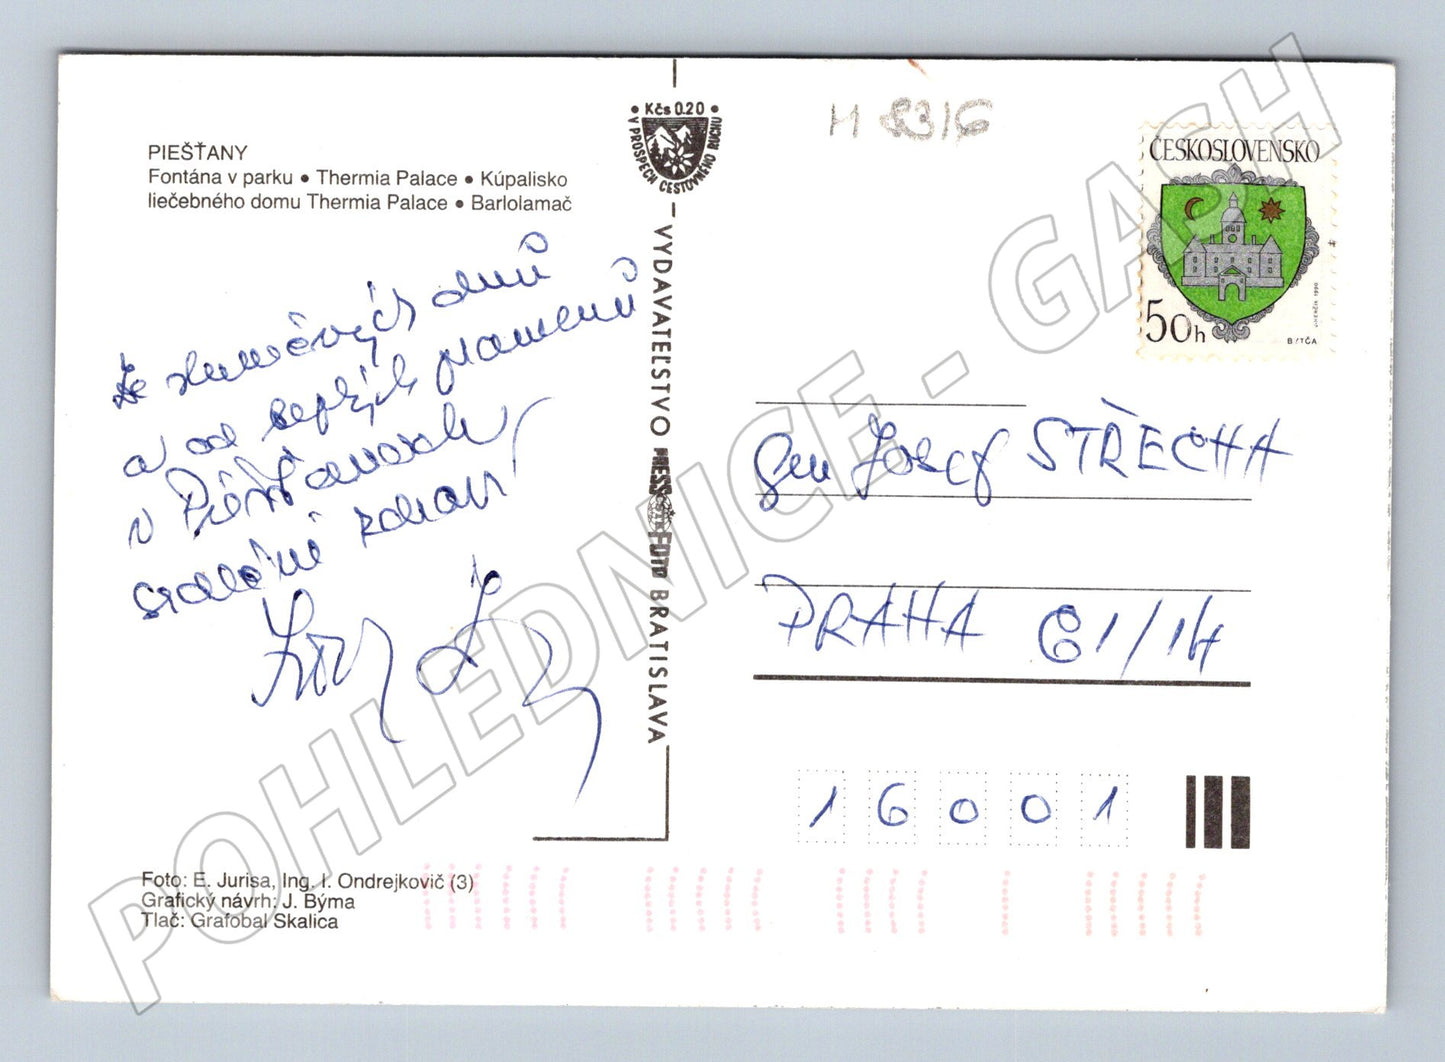 PIEŠŤANY
Fontána v parku • Thermia Palace • Kúpalisko
liečebného domu Thermia Palace • Barlolamač
• Kčs 0.20 •
V PROSPECH CESTOVNÉHO RUCHU
VYDAVATEĽSTVO PRESSFOTO BRATISLAVA
M 8316
ČESKOSLOVENSKO
50h
BYTČA
Ze slunečných dnů
a od teplých pramenů
v Piešťanoch
srdečně zdraví
Gen Josef STŘECHA
PRAHA 61/14
16001
Foto: E. Jurisa, Ing. I. Ondrejkovič (3)
Grafický návrh: J. Býma
Tlač: Grafobal Skalica
POHLEDNICE - GASH